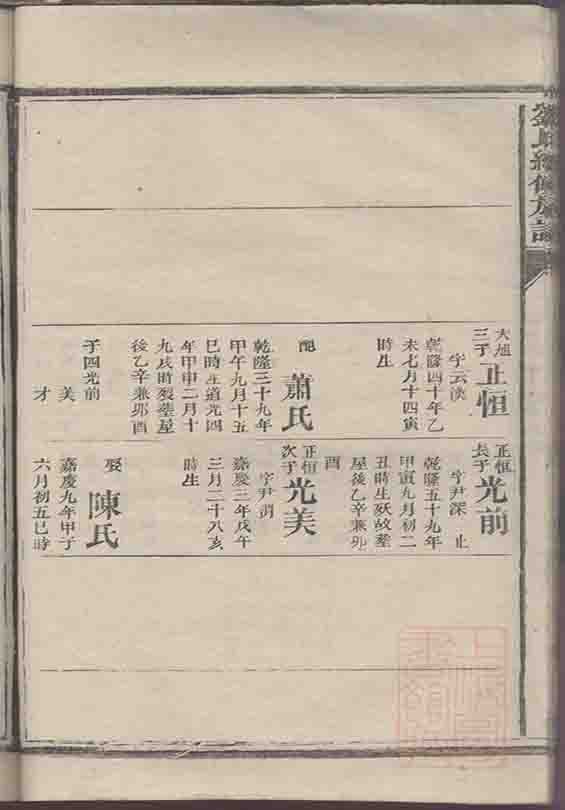 劉氏續修族譜
大旭三子 正恒
字云淡
乾隆四十年乙
未七月十四寅
時生
配 蕭氏
乾隆三十九年
甲午九月十五
巳時生道光四
年甲申二月十
九戌時歿塟屋
後乙辛兼卯酉
子四光前
美
才
正恒長子 光前
字尹深 止
乾隆五十九年
甲寅九月初二
丑時生歿故塟
屋後乙辛兼卯
酉
正恒次子 光美
字尹渭
嘉慶三年戊午
三月二十八亥
時生
娶 陳氏
嘉慶九年甲子
六月初五巳時
上海圖
書館藏